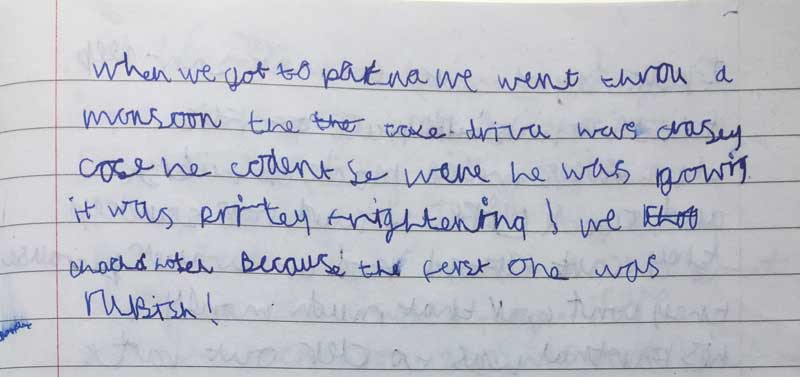 when we got to patna we went throu a
monsoon the the taxe driva was crasey
cose he codent se were he was gowig
it was pritey frightening! we
chachd hotel Because the ferst one was
ruBish!